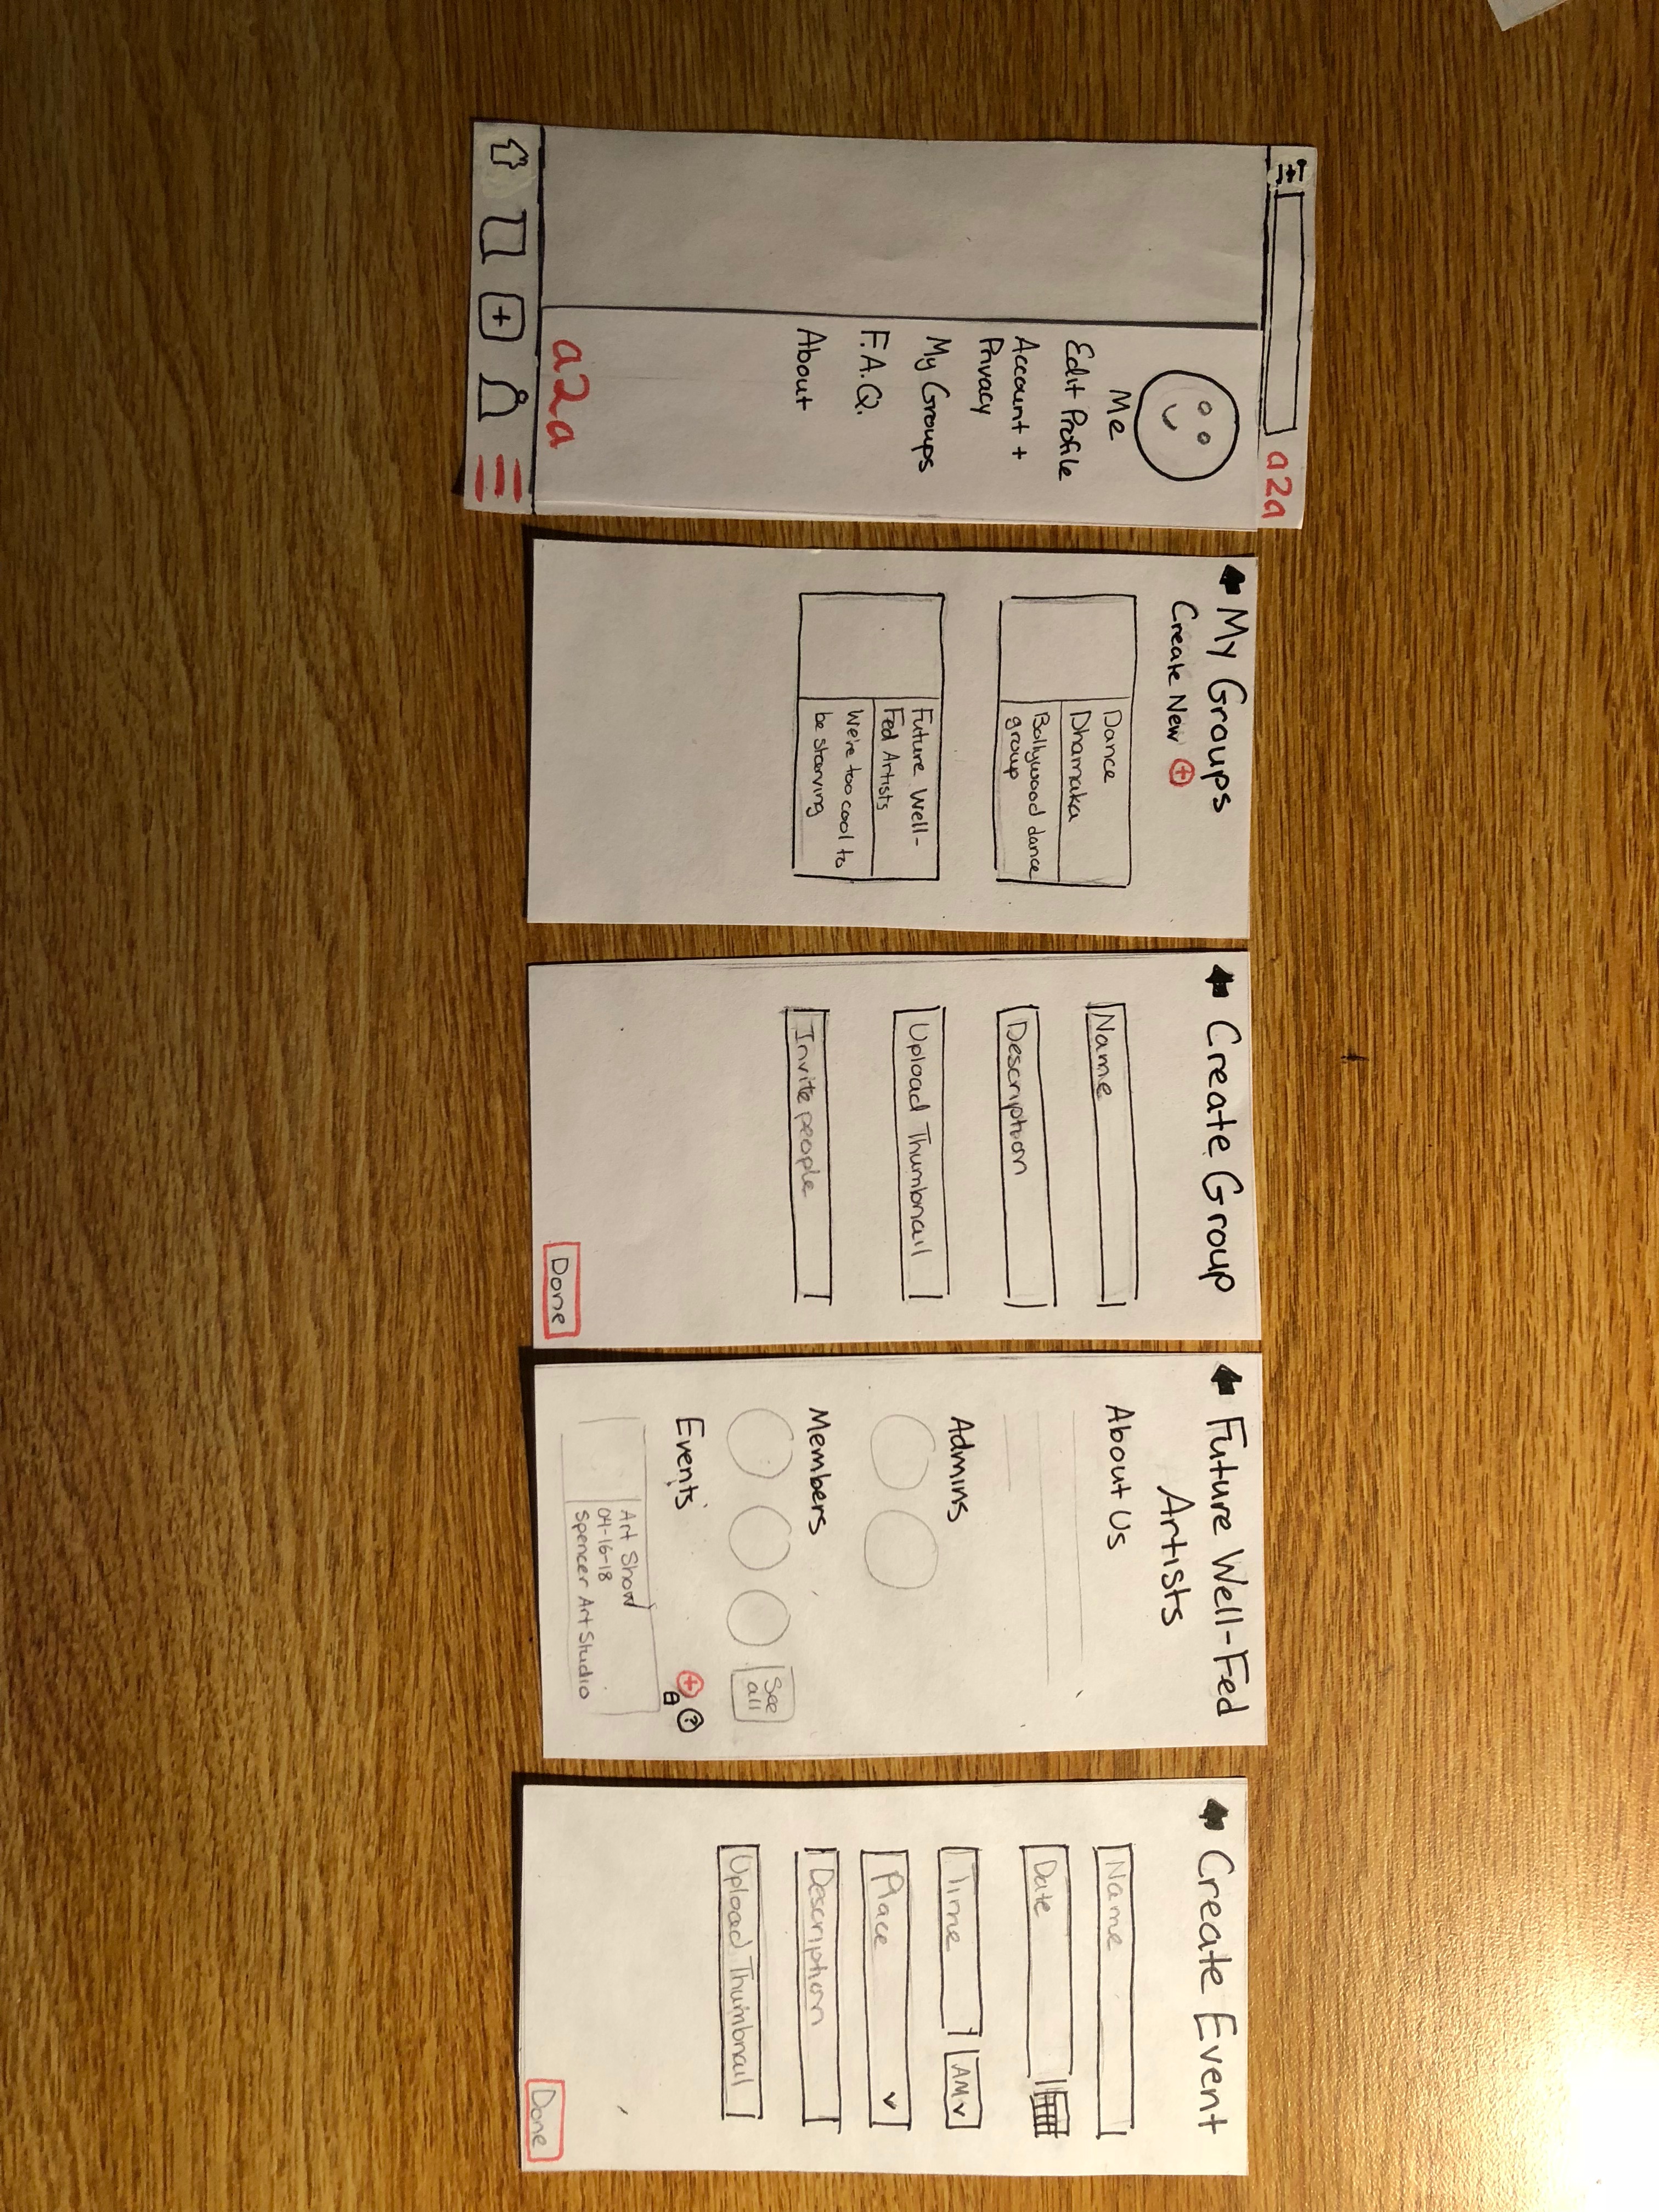 a2a
Me
Edit Profile
Account +
Privacy
My Groups
F.A.Q.
About
a2a
My Groups
Create New +
Dance
Dhamaka
Bollywood dance
group
Future Well-
Fed Artists
We're too cool to
be starving
Create Group
Name
Description
Upload Thumbnail
Invite people
Done
Future Well-Fed
Artists
About Us
Admins
Members
See
all
Events + ?
Art Show
04-16-18
Spencer Art Studio
Create Event
Name
Date
Time AM
Place
Description
Upload Thumbnail
Done